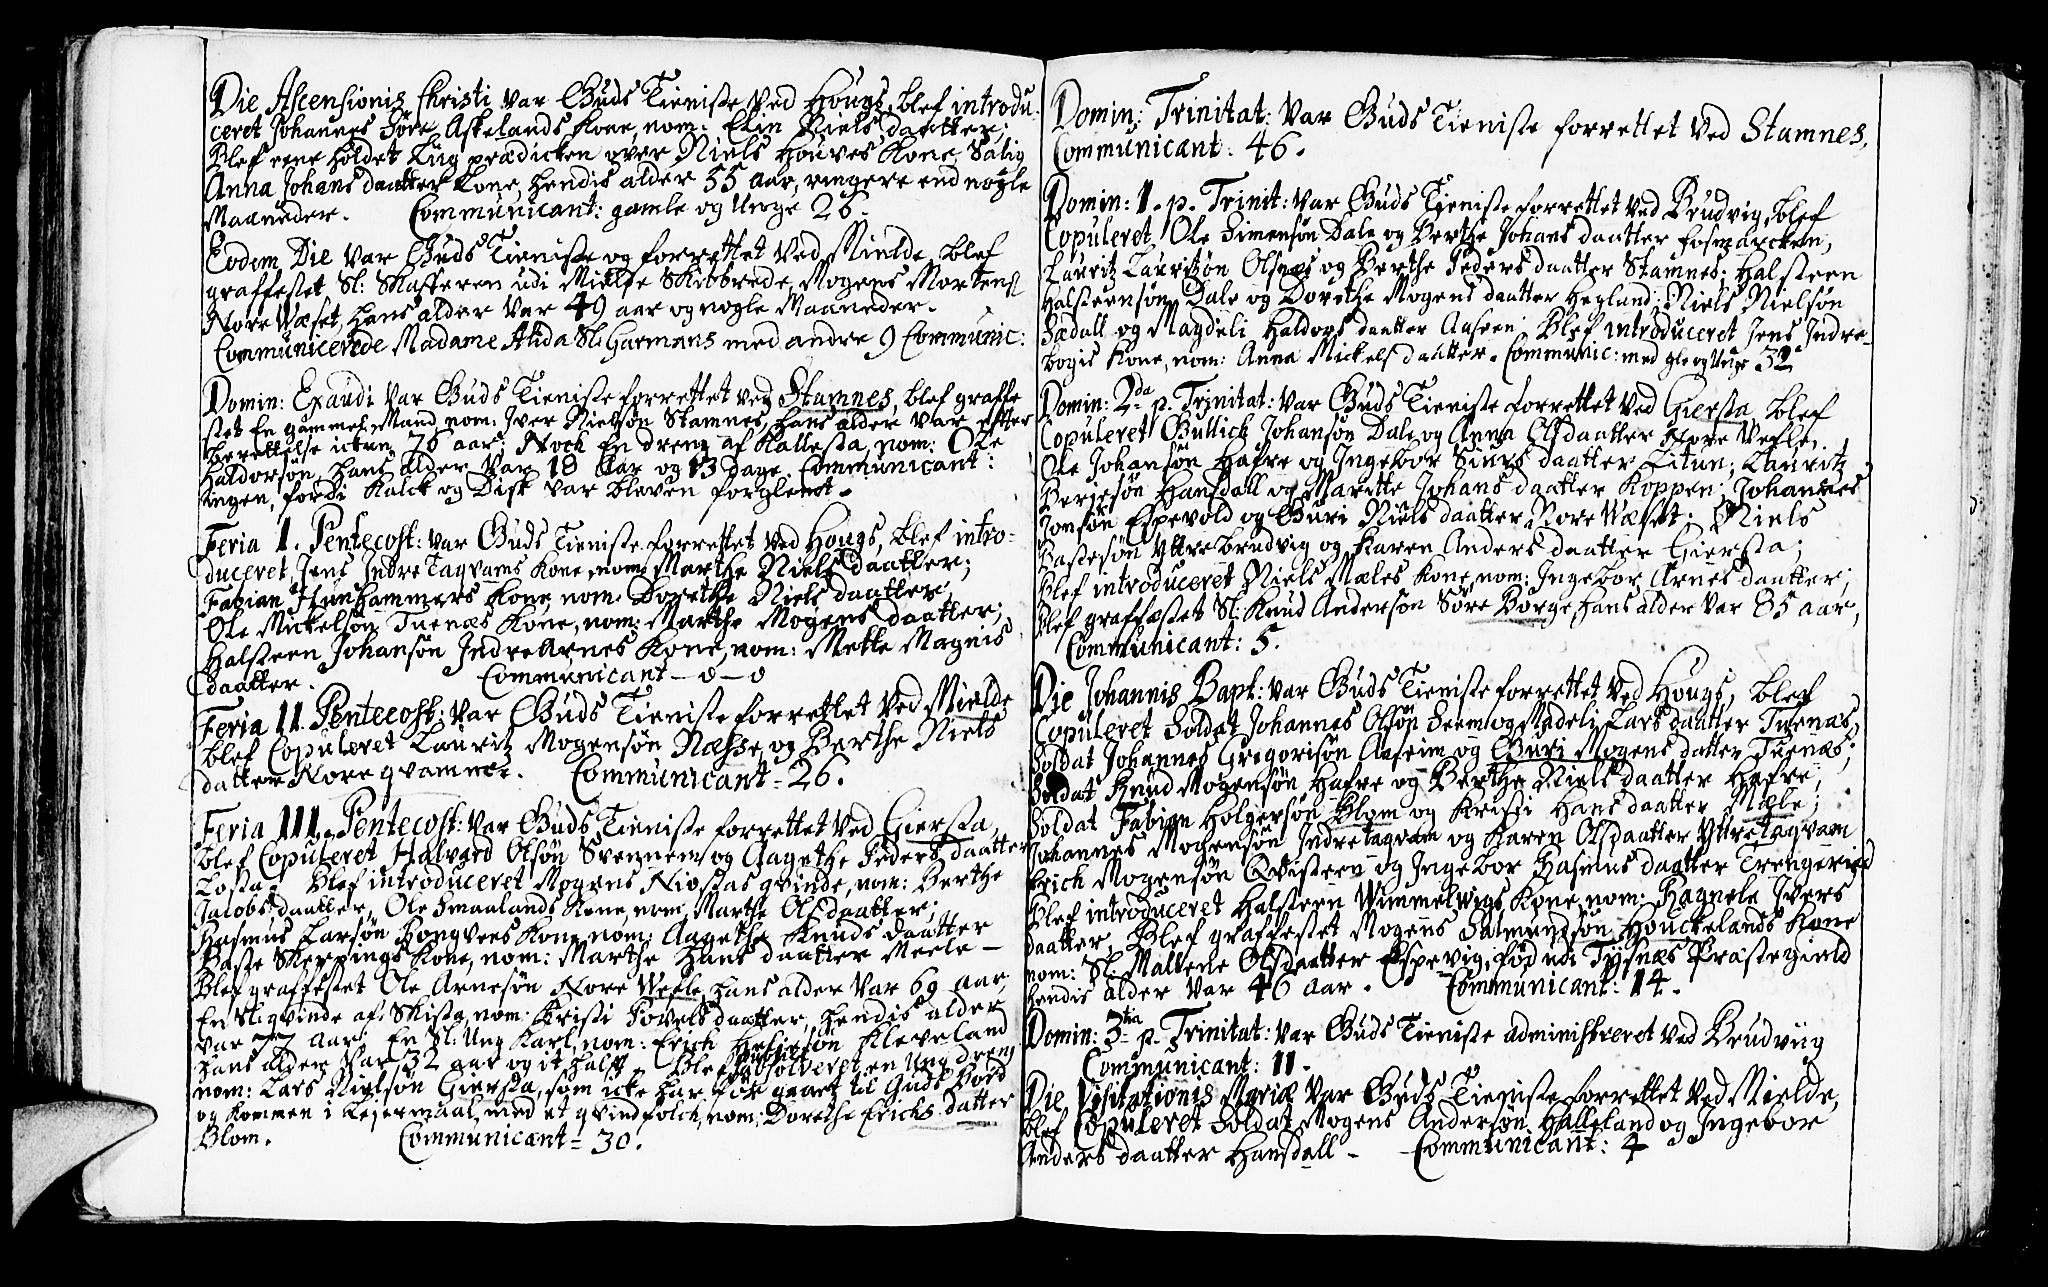 Die Ascensionis Christi var Guds Tieniste ved Hougs, blef introdu-
ceret Johannes Søre Askelands Kone, nom: Elin Niels daatter;
Blef rene holdet Liig prædicken over Niels Houves Kone, Salig
Anna Johans daatter Lone, hendis alder 55 aar, ringere end nogle
Maaneder. Communicant: gamle og Unge 26.
Eodem Die var Guds Tieniste og forrettet ved Mielde, blef
graffestet Sl: Skafferen udi Mielde Skibbrede, Mogens Mortens:
Nore Wæset, hans alder var 49 aar og nogle Maaneder.
Communicerede Madame Alida Sl: Garmans med andre 9 Communic:
Domin: Exaudi var Guds Tieniste forrettet ved Stamnes, blef graffe
stet En gammel Mand, nom: Iver Nielsøn Stamnes, hans alder var efter
berettelse ickun 76 aar; Noch En dreng af Kallesta, nom: Ole
Haldorsøn, hans alder var 18 aar og 13 dage. Communicant:
ingen, fordi Kalck og Disk var bleven forglemt.
Feria 1. Pentecost: var Guds Tieniste forrettet ved Hougs, blef intro-
duceret, Jens Indre Taqvams Kone, nom: Marthe Niels daatter;
Fabian Hunhammers Kone, nom: Dorethe Niels daatter;
Ole Mickelsøn Tuenæs Kone, nom: Marthe Mogens daatter;
Halsteen Johansøn Indre Arnes Kone, nom: Mette Magnis
daatter. Communicant - 0 - 0
Feria II. Pentecost: var Guds Tieniste forrettet ved Mielde
blef Copuleret Lauritz Mogensøn Næsse og Berthe Niels
datter Nore qvamner. Communicant = 26.
Feria III. Pentecost: var Guds Tieniste forrettet ved Giersta,
blef Copuleret Halvard Olsøn Svennem og Aagethe Peders daatter
Losta; Blef introduceret Mogens Niostas qvinde, nom: Berthe
Jacobs daatter, Ole Smaalands Kone, nom: Marthe Olsdaatter;
Rasmus Larsøn Hongvees Kone, nom: Aagethe Knuds daatter
Baste Skerpings Kone, nom: Marthe Hans daatter Meele -
Blef graffestet Ole Arnesøn Nore Wefle, hans alder var 69 aar,
En Sl: qvinde af Skista, nom: Kristi Povels daatter, hendis alder
var 77 aar; En Sl: Ung Karl, nom: Erich Hersesøn Kleveland
hans alder var 32 aar og it halft. Blef publice absolveret, en Ung dreng
nom: Lars Nielsøn Giersta, som icke har før gaaet til Guds Bord
og Kommen i Lejermaal med et qvindfolck, nom: Dorethe Erichs datter
Blom. Communicant = 30.
Domin: Trinitat: var Guds Tieniste forrettet ved Stamnes,
Communicant: 46.
Domin: 1. p. Trinit: var Guds Tieniste forrettet ved Brudvig, blef
Copuleret Ole Simensøn Dale og Berthe Johans daatter Fosmarcken,
Lauritz Lauritzøn Olsnæs og Berthe Peders daatter Stamnes; Halsteen
Halsteensøn Dale og Dorethe Mogens daatter Hegland; Niels Nielsøn
Sædall og Magdeli Haldors daatter Aaseen; Blef introduceret Jens Indre-
bogis Kone, nom: Anna Mickels daatter. Communic: med gle og Unge 32
Domin: 2da p. Trinitat: var Guds Tieniste forrettet ved Giersta, blef
Copuleret Gullick Johansøn Dale og Anna Olsdaatter Nore Vefle,
Ole Johansøn Hafre og Ingebor Siurs daatter Litun; Lauritz
Berjesøn Hansdall og Maritte Johans daatter Koppen; Johannes
Jonsøn Espevold og Guri Niels daatter Nore Wæset; Niels
Bastesøn Yttre brudvig og Karen Anders daatter Giersta;
Blef introduceret Niels Mæles Kone, nom: Ingebor Arnes daatter;
Blef graffæstet Sl: Knud Andersøn Søre Borge, hans alder var 85 aar,
Communicant: 5.
Die Johannis Bapt: var Guds Tieniste forrettet ved Hougs, blef
Copuleret Soldat Johannes Olsøn Seem og Madeli Lars daatter Tuenæs,
Soldat Johannes Gregorisøn Aaseim og Guri Mogens datter Tuenæs;
Soldat Knud Mogensøn Hafre og Berthe Niels daatter Hafre,
Soldat Fabian Holgersøn Blom og Kristi Hans daatter Mæle;
Johannes Mogensøn Indretaqvam og Karen Olsdaatter Yttretaqvam
Erich Mogensøn Qvisteen og Ingebor Rasmus daatter Trengeried
Blef introduceret Halsteen Wimmelwigs Kone, nom: Ragnele Ivers
daatter, Blef graffestet Mogens Salmundsøn Houckelands Kone
nom: Sl: Mallene Olsdaatter Espevig, fød udi Tysnæs Præstegield
hendis alder var 46 aar. Communicant: 14.
Domin: 3tia p. Trinitat: var Guds Tieniste administreret ved Brudviig
Communicant: 11.
Die Visitationis Mariæ var Guds Tieniste forrettet ved Mielde,
blef Copuleret Soldat Mogens Andersøn Halleland og Ingebor
Anders daatter Hansdall - Communicant: 4